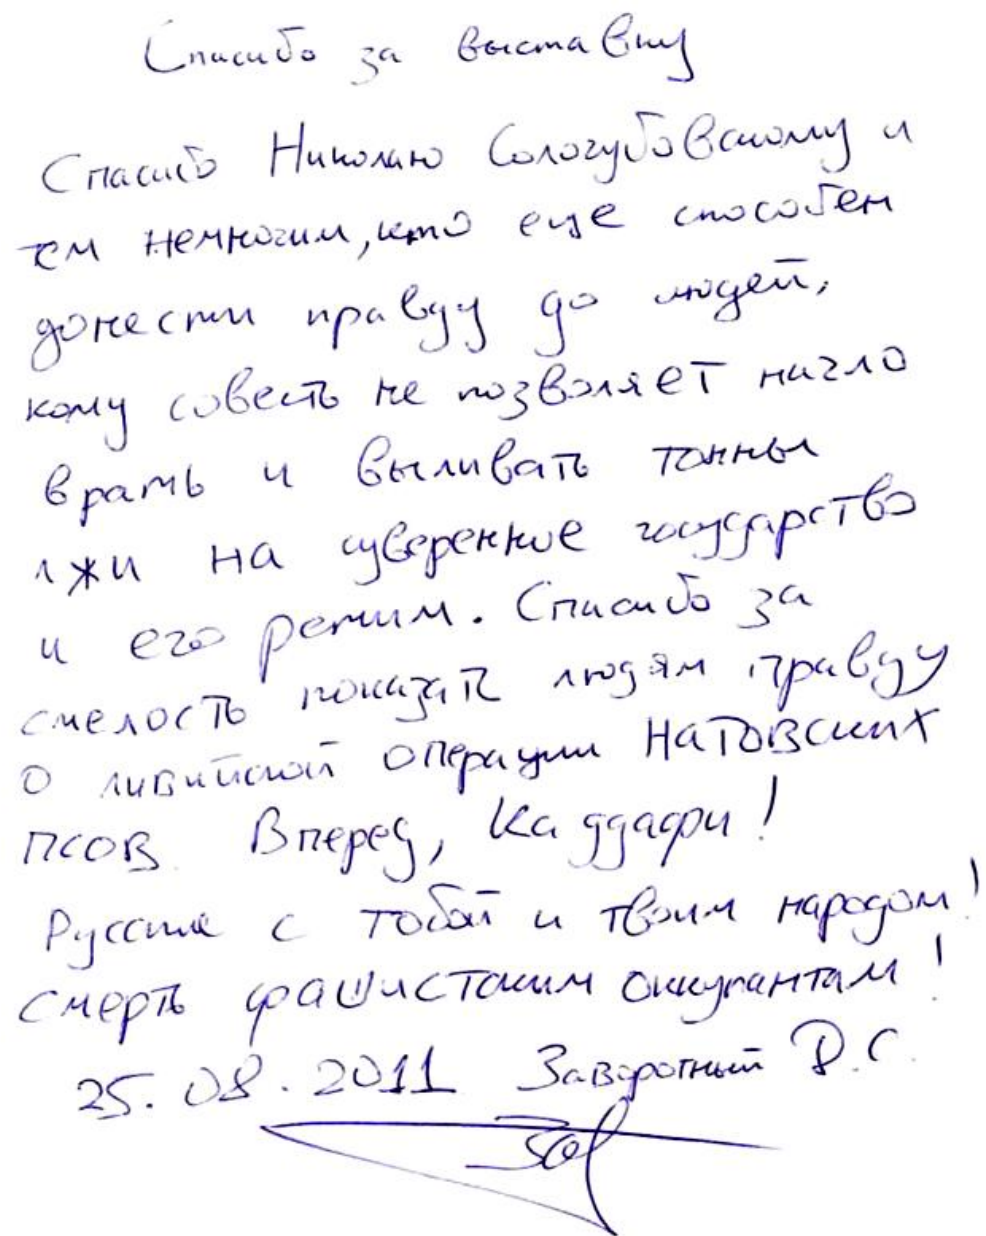 Спасибо за выставку
Спасибо Николаю Сологубовскому и
тем немногим, кто еще способен
донести правду до людей,
кому совесть не позволяет нагло
врать и выливать тонны
лжи на суверенное государство
и его режим. Спасибо за
смелость показать людям правду
о ливийской операции НАТОВСКИХ
ПСОВ. Вперед, Каддафи!
Русские с тобой и твоим народом!
Смерть фашистским оккупантам!
25.08.2011 Заворотный В.С.